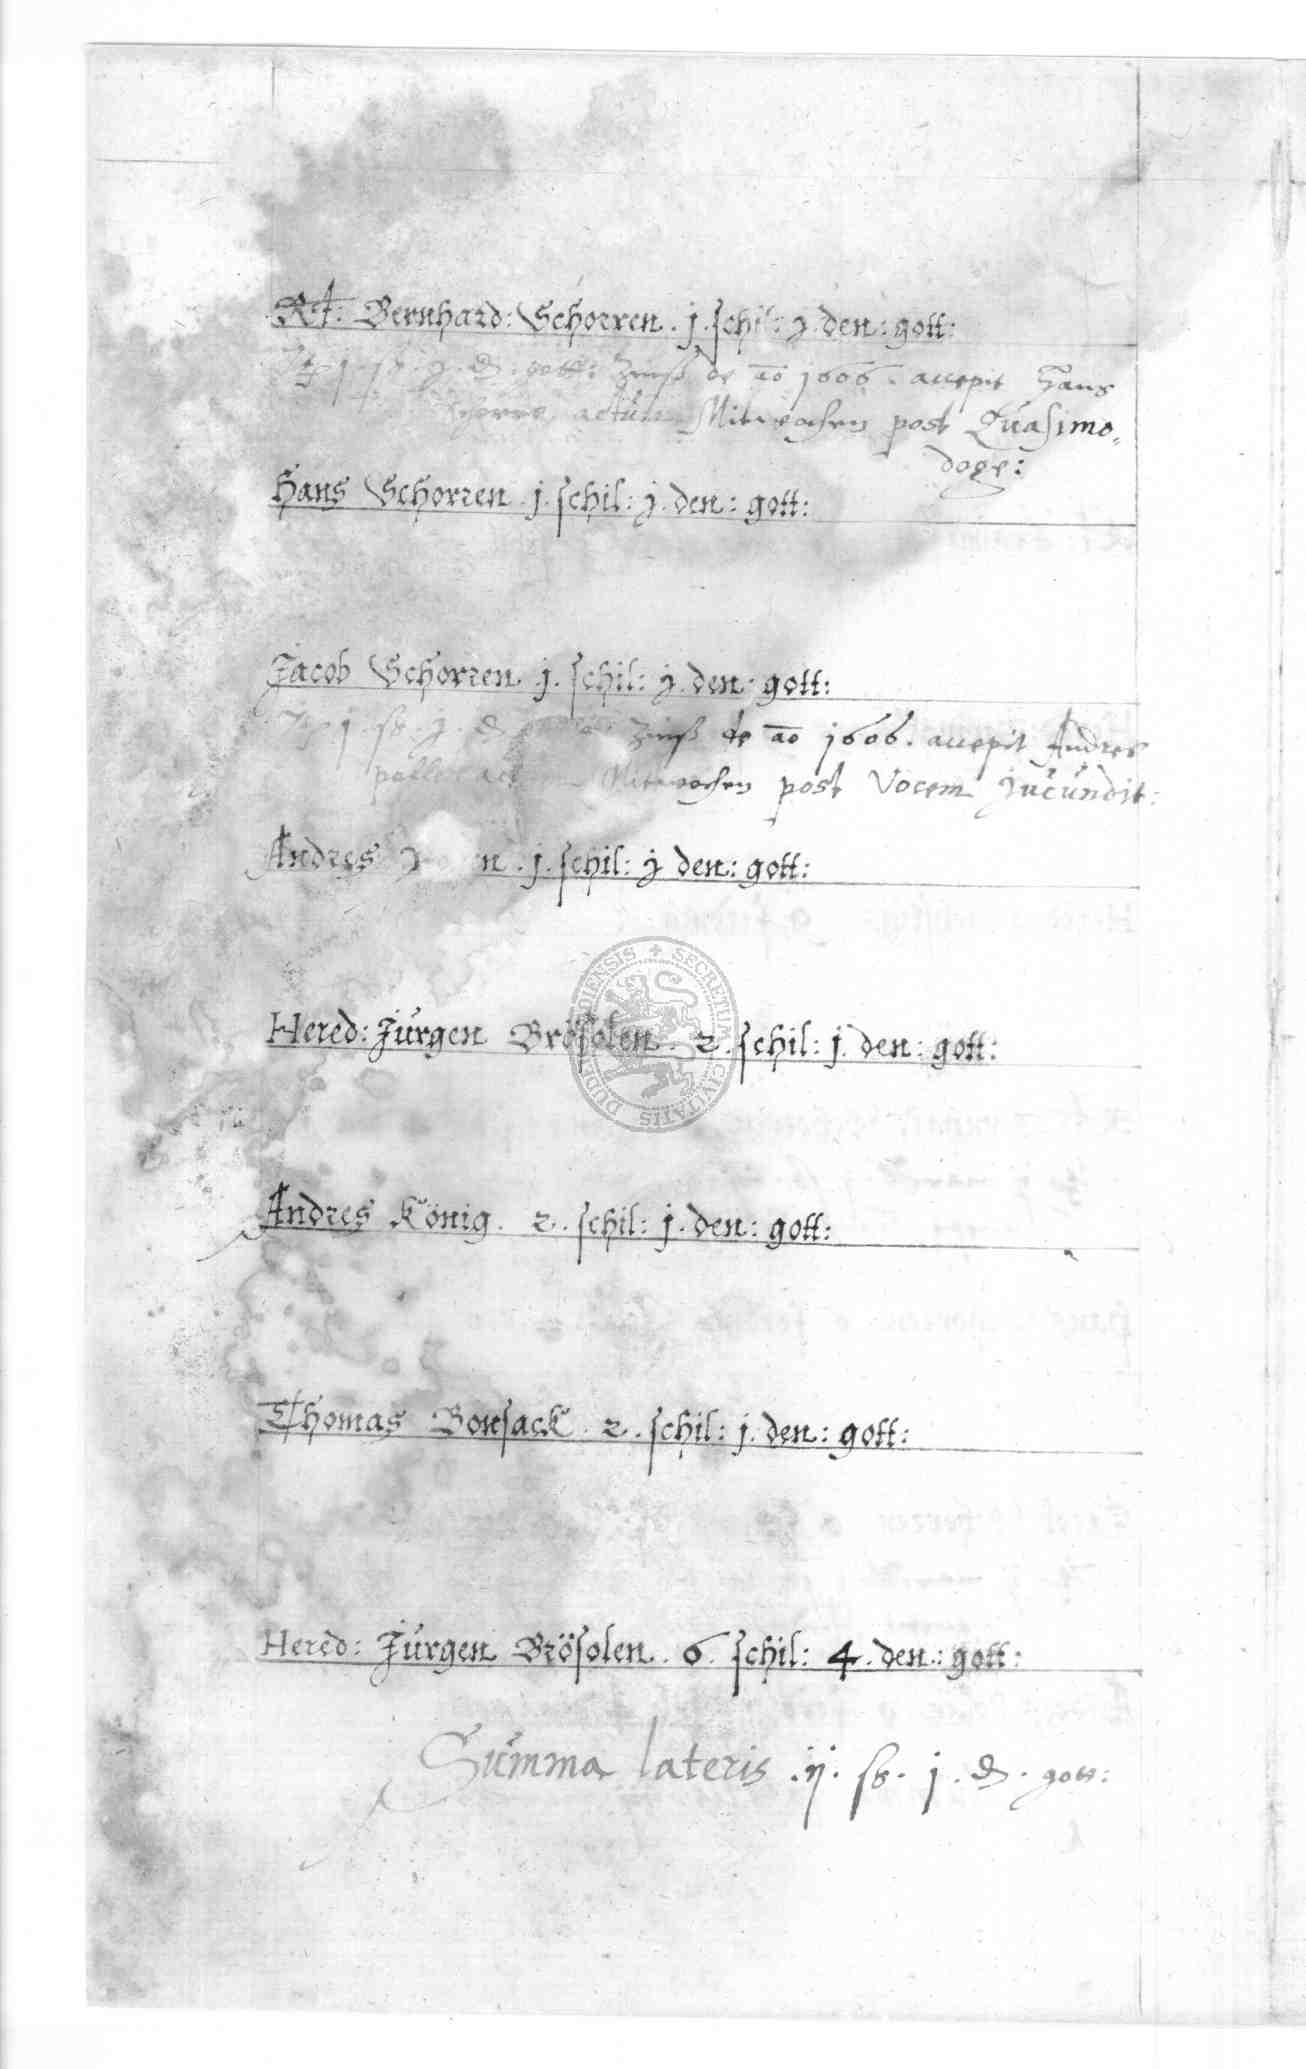 Rt: Bernhard: Schorren. j. schil: j. den: gott:
j. sß. j. d. gott: Zinß de ao 1606. accepit Hans
Schorre actum Mitwochen post Quasimo„
doge:
Hans Schorren. j. schil: j. den: gott:
Jacob Schorren j. schil: j. den: gott:
j. sß. j. d. Zinß de ao 1606. accepit Andres
Mitwochen post Vocem jucundit:
Andres j. schil: j den: gott:
Hered: Jürgen Brösolen. 2. schil: j. den: gott:
SECRETUM CIVITATIS DUDE DIENSIS
Andres König. 2. schil: j. den: gott:
Thomas Bonsack. 2. schil: j. den: gott:
Hered: Jürgen Brösolen. 6. schil: 4. den: gott:
Summa lateris .ij. sß. j. d. gott: